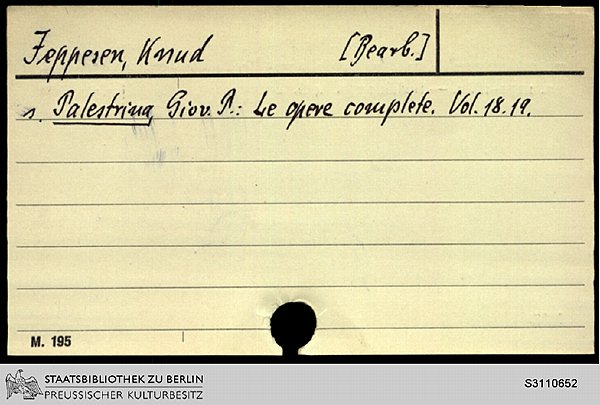 Jeppesen, Knud [Bearb.]
s. Palestrina, Giov. P.: Le opere complete. Vol. 18.19.
M. 195
STAATSBIBLIOTHEK ZU BERLIN
PREUSSISCHER KULTURBESITZ
S3110652